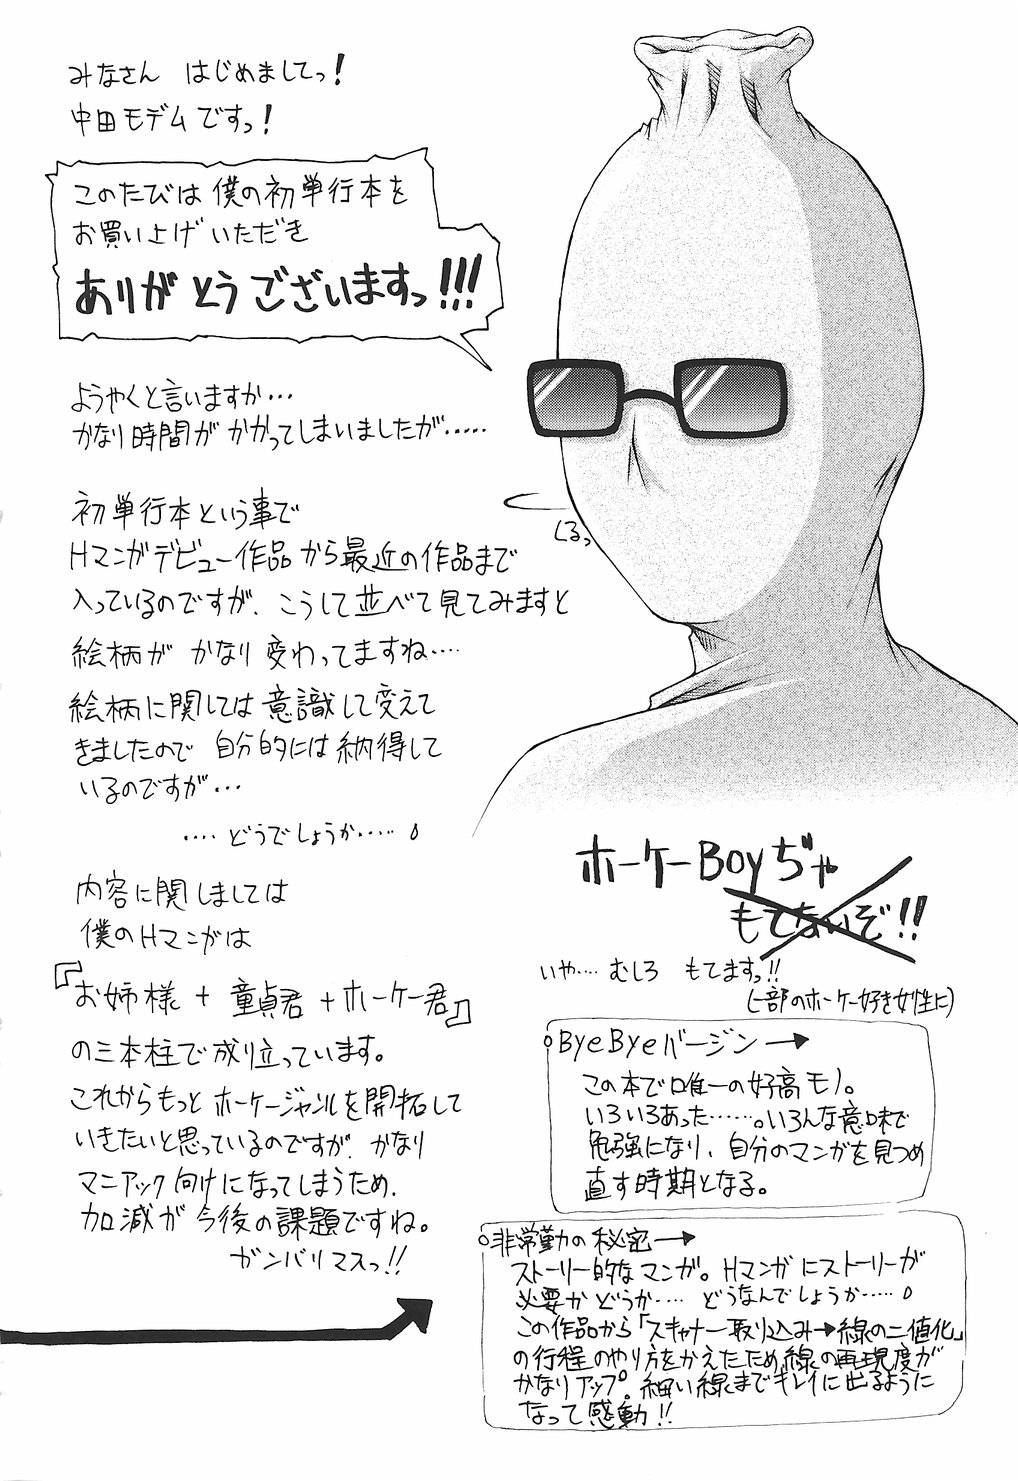 みなさん はじめましてっ!
中田モデムですっ!
このたびは僕の初単行本を
お買い上げいただき
ありがとうございますっ!!!
ようやくと言いますか…
かなり時間がかかってしまいましたが……
初単行本という事で
Hマンガデビュー作品から最近の作品まで
入っているのですが、こうして並べて見てみますと
絵柄がかなり変わってますね…
絵柄に関しては意識して変えて
きましたので自分的には納得して
いるのですが…
…どうでしょうか……
内容に関しましては
僕のHマンガは
『お姉様+童貞君+ホーケー君』
の三本柱で成り立っています。
これからもっとホーケージャンルを開拓して
いきたいと思っているのですが、かなり
マニアック向けになってしまうため、
加減が今後の課題ですね。
ガンバリマスっ!!
くるっ
ホーケーBoyぢゃ
もてないぞ!!
いや…むしろ もてますっ!!
(一部のホーケー好き女性に)
○ByeByeバージン→
この本で唯一の好高モノ。
いろいろあった……。いろんな意味で
勉強になり、自分のマンガを見つめ
直す時期となる。
○非常勤の秘密→
ストーリー的なマンガ。Hマンガにストーリーが
必要かどうか…どうなんでしょうか……
この作品から「スキャナー取り込み→線の二値化」
の行程のやり方をかえたため、線の再現度が
かなりアップ。細い線までキレイに出るように
なって感動!!